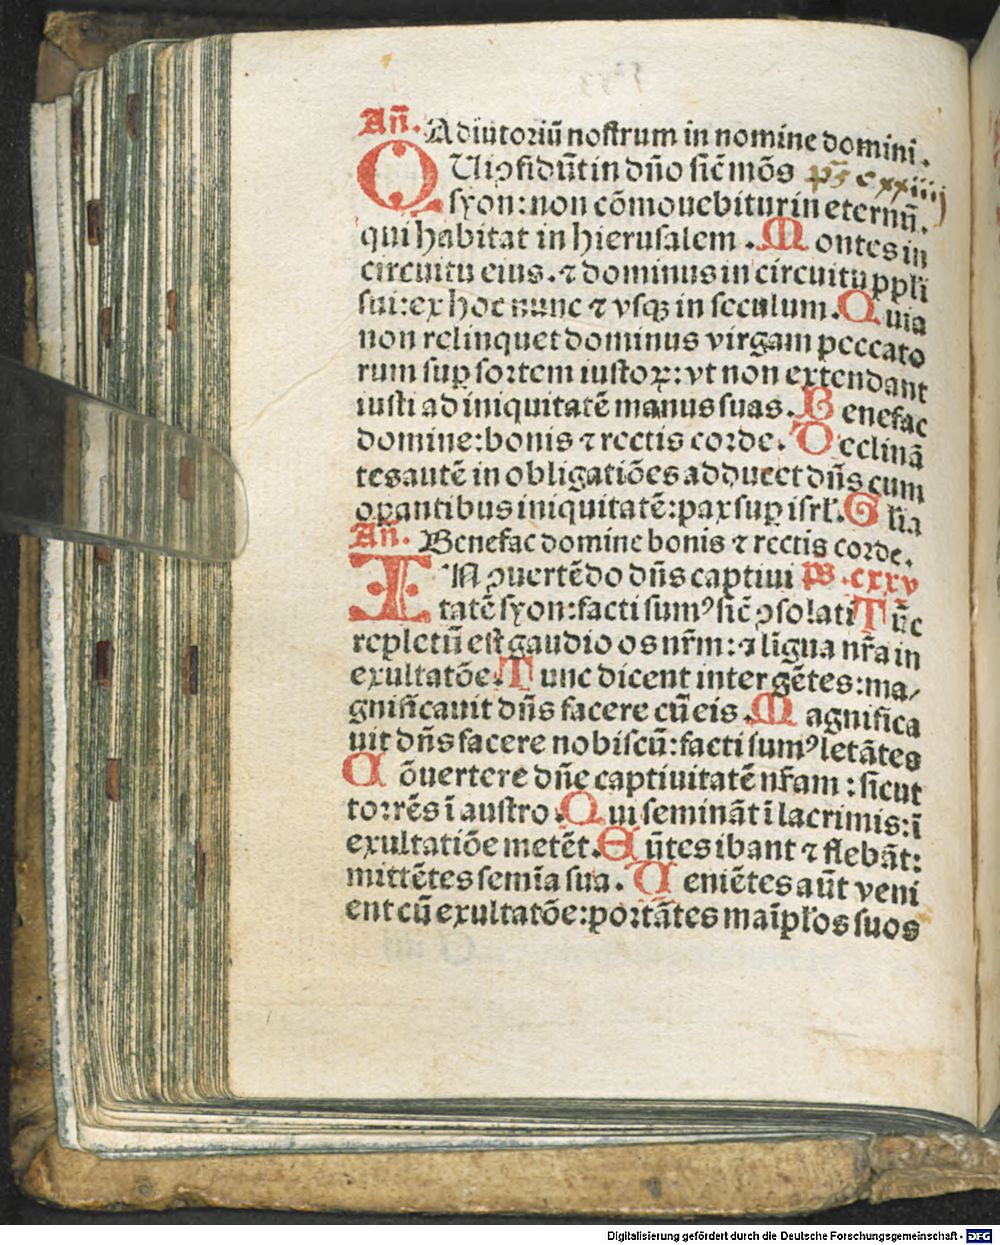 Añ. Adiutoriū nostrum in nomine domini.
QUi ꝯfidūt in dño sic̄ mōs p̄s cxxiiij
syon: non cōmouebitur in eternū.
qui habitat in hierusalem. Montes in
circuitu eius. ⁊ dominus in circuitu ppl̄i
sui: ex hoc nunc ⁊ vsqꝫ in seculum. Quia
non relinquet dominus virgam peccato
rum sup̱ sortem iustoꝝ: vt non extendant
iusti ad iniquitatē manus suas. Benefac
domine: bonis ⁊ rectis corde. Declinā
tes autē in obligatiōes adducet dñs cum
oꝑantibus iniquitatē: pax suꝑ isrl̄. Glīa
Añ. Benefac domine bonis ⁊ rectis corde.
IN ꝯuertēdo dñs captiui ps. cxxv
tatē syon: facti sumꝰ sic̄ ꝯsolati Tūc
repletū est gaudio os nr̄m: ⁊ līgua nr̄a in
exultatōe. Tunc dicent inter gētes: ma-
gnificauit dñs facere cū eis. Magnifica
uit dñs facere nobiscū: facti sumꝰ letātes
Cōuertere dñe captiuitatē nr̄am: sicut
torrēs ī austro. Qui semināt ī lacrimis: ī
exultatiōe metēt. Eūtes ibant ⁊ flebāt:
mittētes semīa sua. Ueniētes aūt veni
ent cū exultatōe: portātes maīpl̄os suos
Digitalisierung gefördert durch die Deutsche Forschungsgemeinschaft - DFG